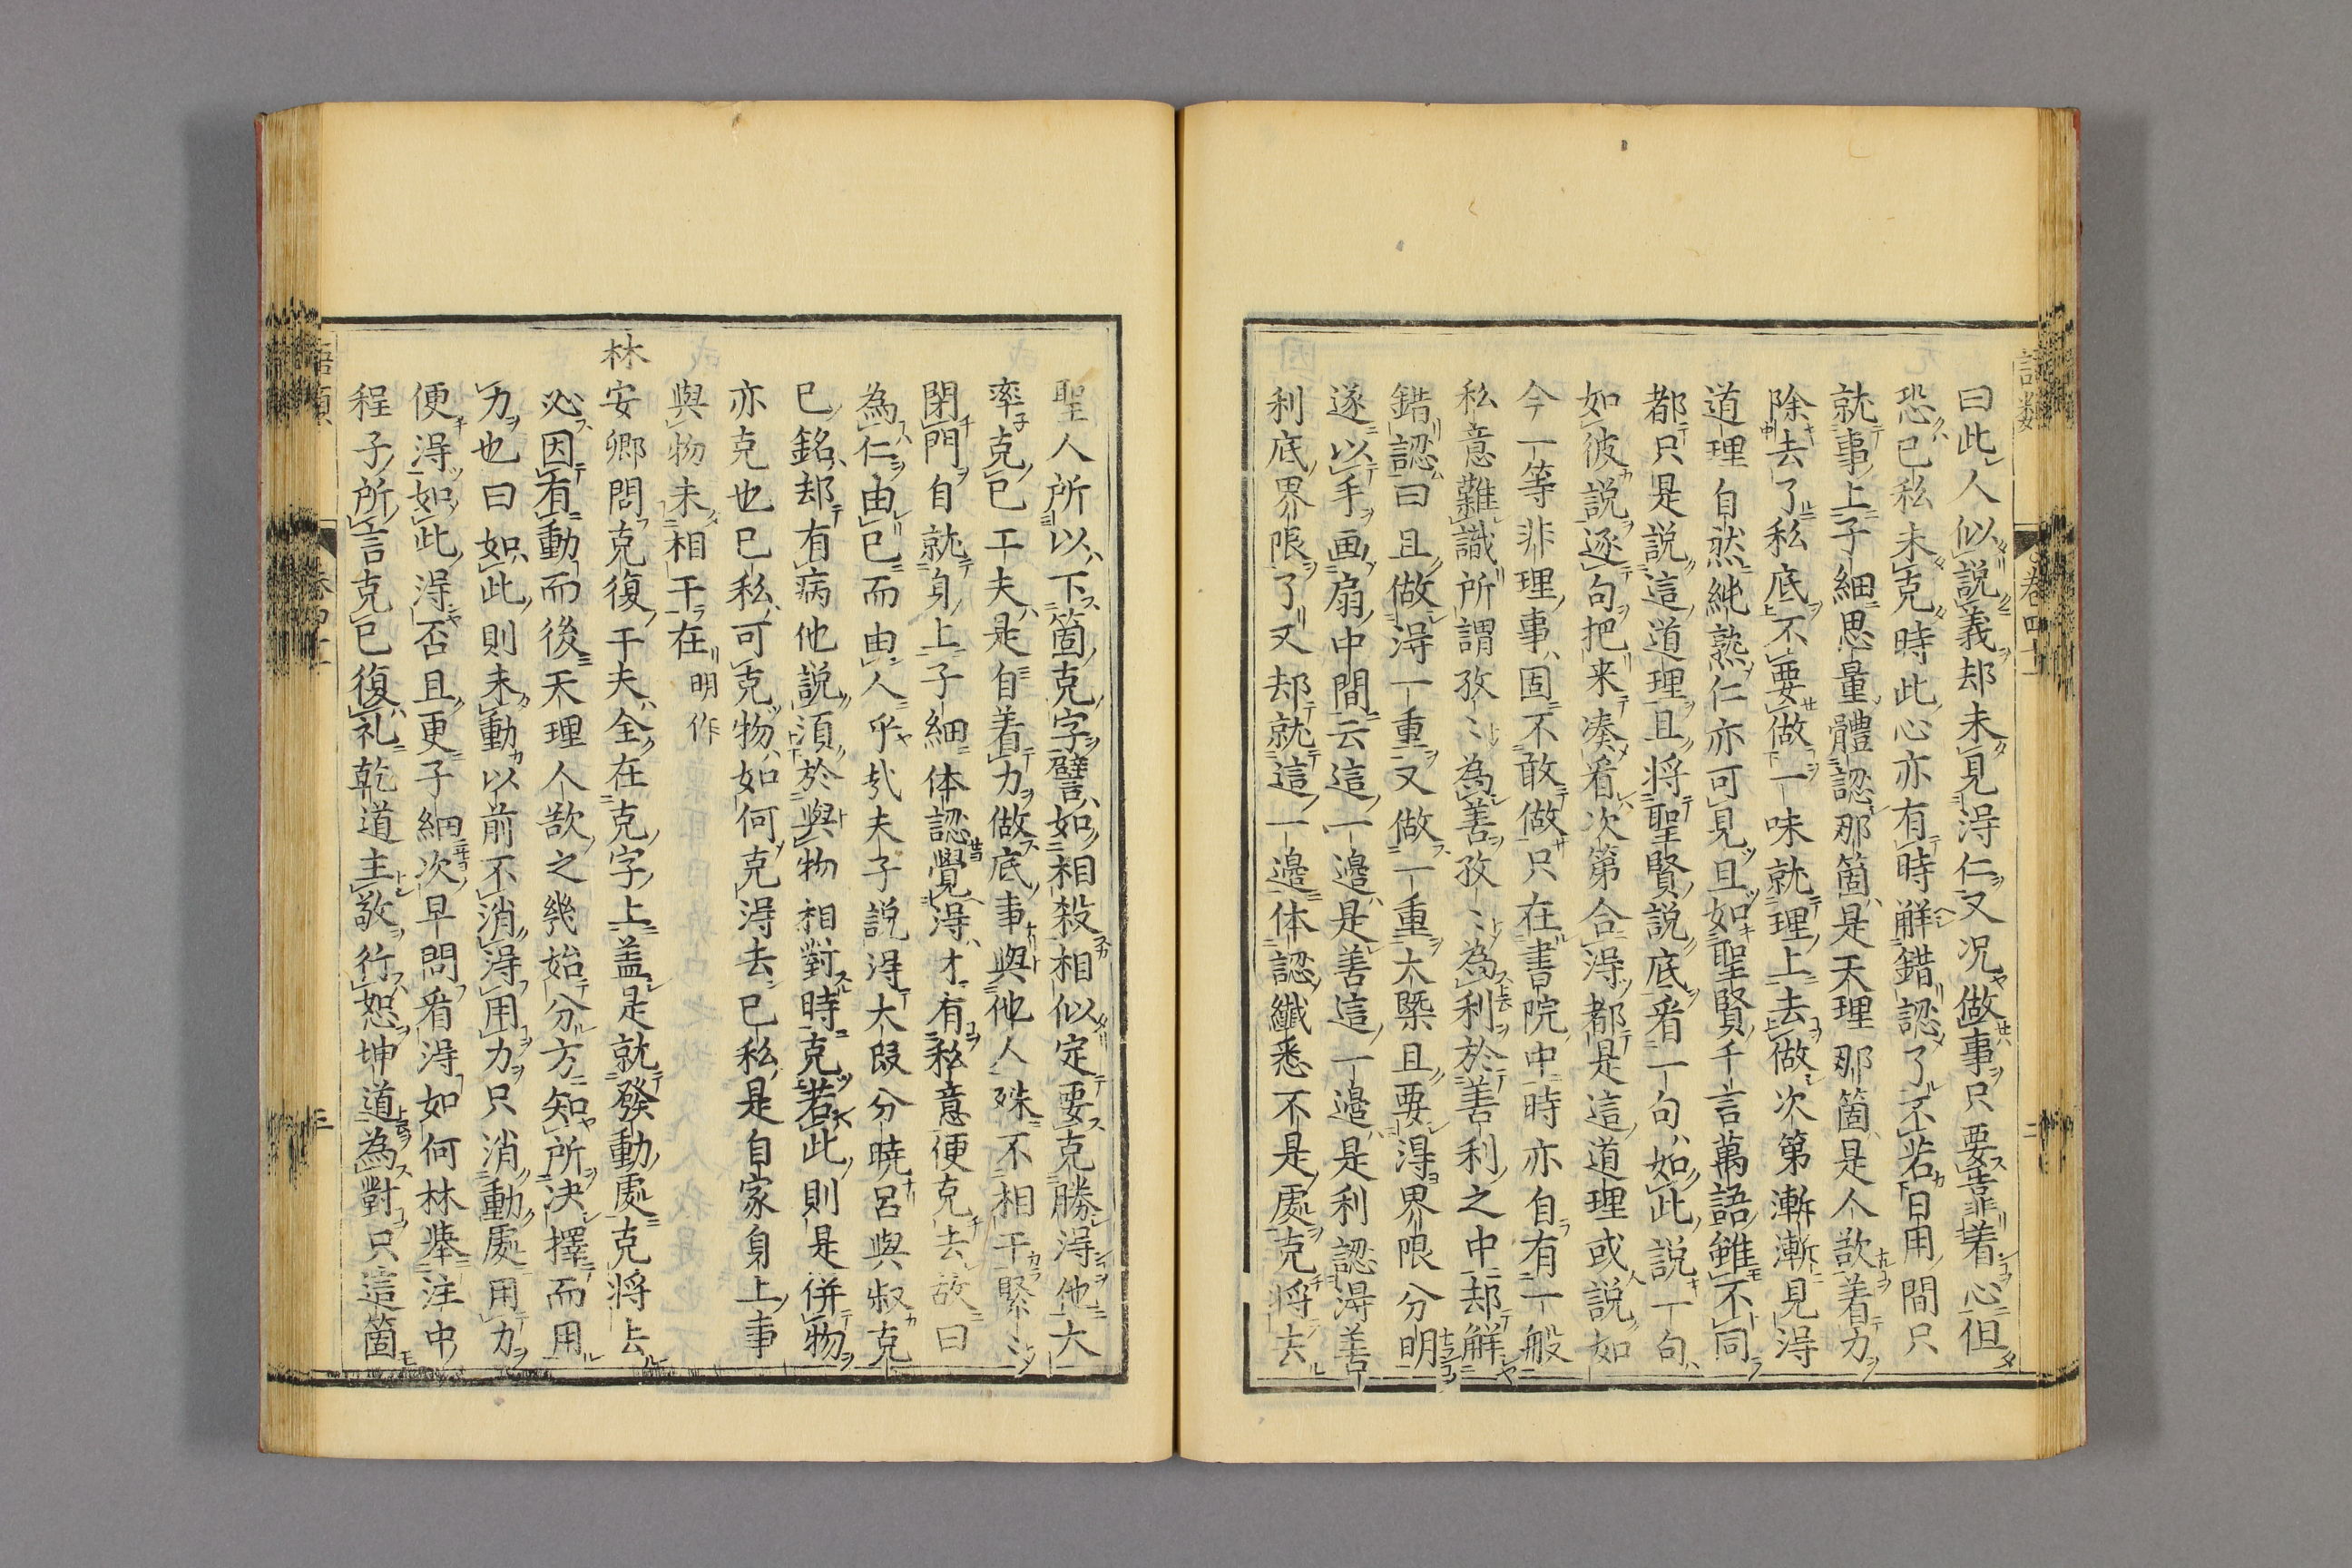 曰此人似説義却未見淂仁又况做事只要靠着心但
恐已私未克時此心亦有時觧錯認了不若日用間只
就事上子細思量體認那箇是天理那箇是人欲着力
除去了私底不要做一味就理上去做次第漸漸見淂
道理自然純熟仁亦可見且如聖賢千言萬語雖不同
都只是説這道理且将聖賢説底看一句如此説一句
如彼説逐句把来凑看次第合淂都是這道理或説如
今一等非理事固不敢做只在書院中時亦自有一般
私意難識所謂孜〻為善孜〻為利於善利之中却觧
錯認曰且做淂一重又做一重大槩且要淂界限分明
遂以手画扇中間云這一邉是善這一邉是利認淂善
利底界限了又却就這一邉体認纖悉不是處克将去
聖人所以下箇克字譬如相殺相似定要克勝淂他大
率克已工夫是自着力做底事與他人殊不相干緊〻
閉門自就身上子細体認覺淂才有私意便克去故曰
為仁由已而由人乎㢤夫子説淂大叚分暁呂與叔克
已銘却有病他説須於與物相對時克若此則是併物
亦克也已私可克物如何克淂去已私是自家身上事
與物未相干在 明作
林安卿問克復工夫全在克字上盖是就發動處克将去
必因有動而後天理人欲之幾始分方知所决擇而用
力也曰如此則未動以前不消淂用力只消動處用力
便淂如此淂否且更子細次早問看淂如何林舉注中
程子所言克已復礼乾道主敬行恕坤道為對只這箇
語類
卷四十一
二
語類
卷四十一
三